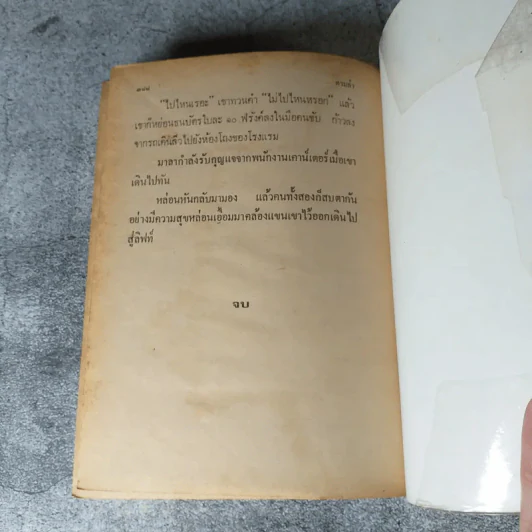 ๗๔๔ ตามล่า
"ไปไหนเรอะ" เขาทวนคำ "ไม่ไปไหนหรอก" แล้ว
เขาก็หย่อนธนบัตรใบละ ๑๐ ฟรังค์ลงในมือคนขับ ก้าวลง
จากรถเดินลิ่วไปยังห้องโถงของโรงแรม
มาลากำลังรับกุญแจจากพนักงานเคาน์เตอร์เมื่อเขา
เดินไปทัน
หล่อนหันกลับมามอง แล้วคนทั้งสองก็สบตากัน
อย่างมีความสุขหล่อนเอื้อมมาคล้องแขนเขาไว้ออกเดินไป
สู่ลิฟท์
จบ